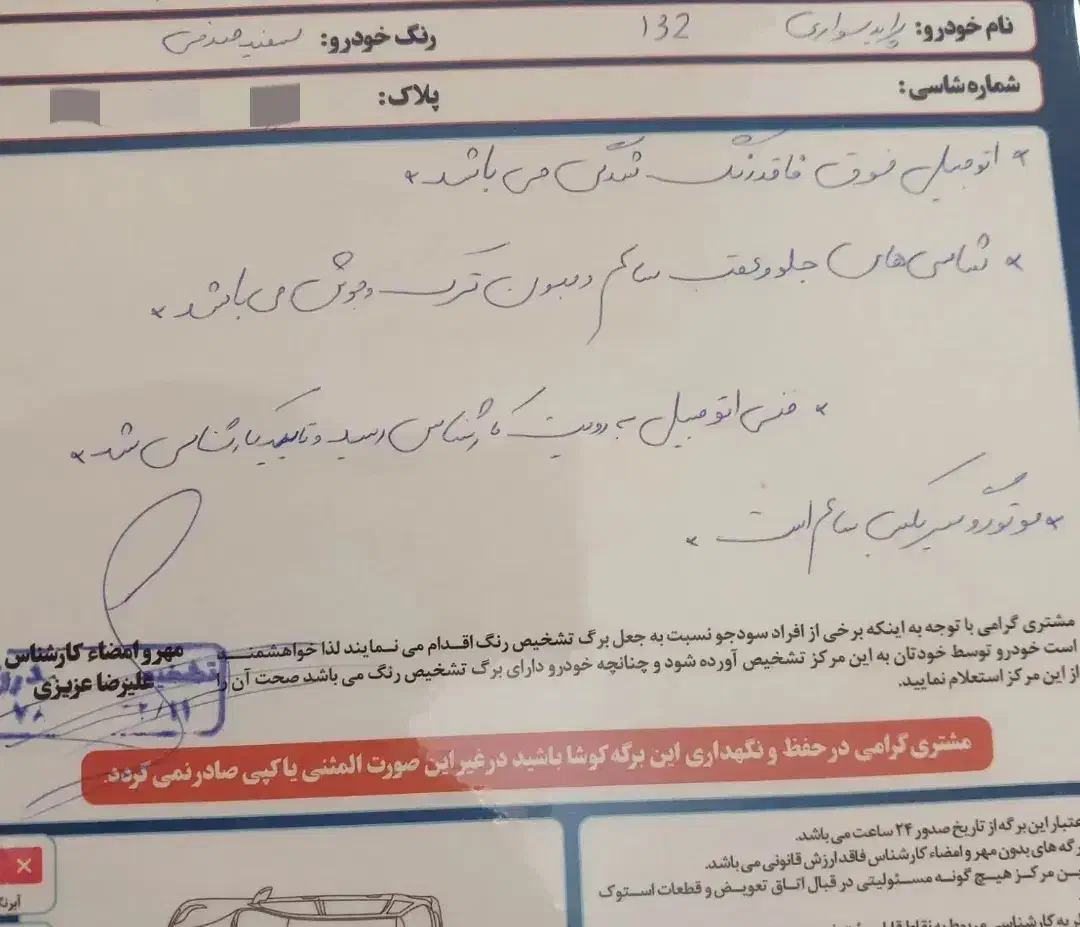 نام خودرو: پراید سواری 132 رنگ خودرو: سفید صدفی
شماره شاسی: پلاک:
* اتومبیل فوق فاقد رنگ شدگی می باشد *
* شاسی های جلو و عقب سالم و بدون ترک و جوش می باشد *
* فنی اتومبیل به رویت کارشناس رسید و تایید کارشناسی شد *
* موتور و گیربکس سالم است *
مشتری گرامی با توجه به اینکه برخی از افراد سودجو نسبت به جعل برگ تشخیص رنگ اقدام می نمایند لذا خواهشمند
است خودرو توسط خودتان به این مرکز تشخیص آورده شود و چنانچه خودرو دارای برگ تشخیص رنگ می باشد صحت آن را
از این مرکز استعلام نمایید.
مهر و امضاء کارشناس
علیرضا عزیزی
مشتری گرامی در حفظ و نگهداری این برگه کوشا باشید در غیر این صورت المثنی یا کپی صادر نمی گردد.
اعتبار این برگه از تاریخ صدور ۲۴ ساعت می باشد.
برگه های بدون مهر و امضاء کارشناس فاقد ارزش قانونی می باشد.
این مرکز هیچ گونه مسئولیتی در قبال اتاق تعویض و قطعات استوک